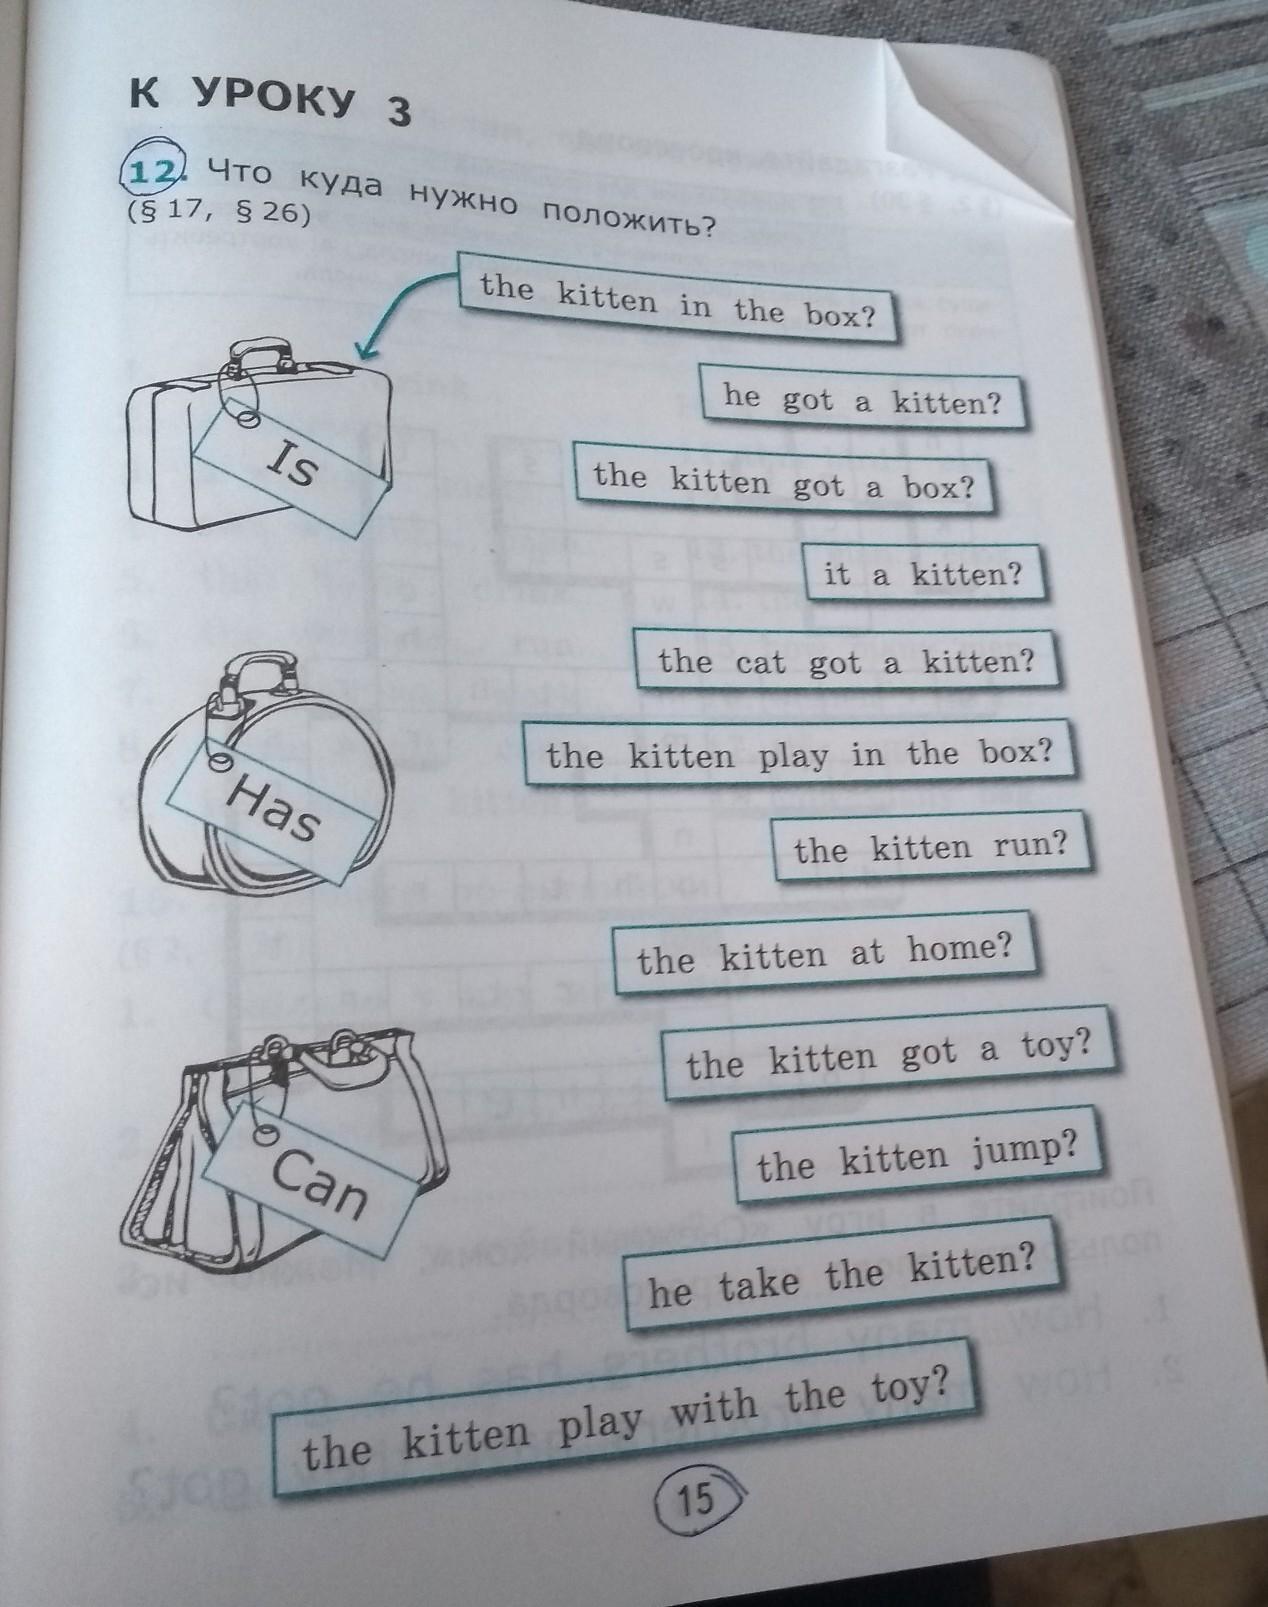 К УРОКУ 3
12. Что куда нужно положить?
(§ 17, § 26)
the kitten in the box?
he got a kitten?
Is
the kitten got a box?
it a kitten?
the cat got a kitten?
the kitten play in the box?
Has
the kitten run?
the kitten at home?
the kitten got a toy?
Can
the kitten jump?
he take the kitten?
the kitten play with the toy?
15